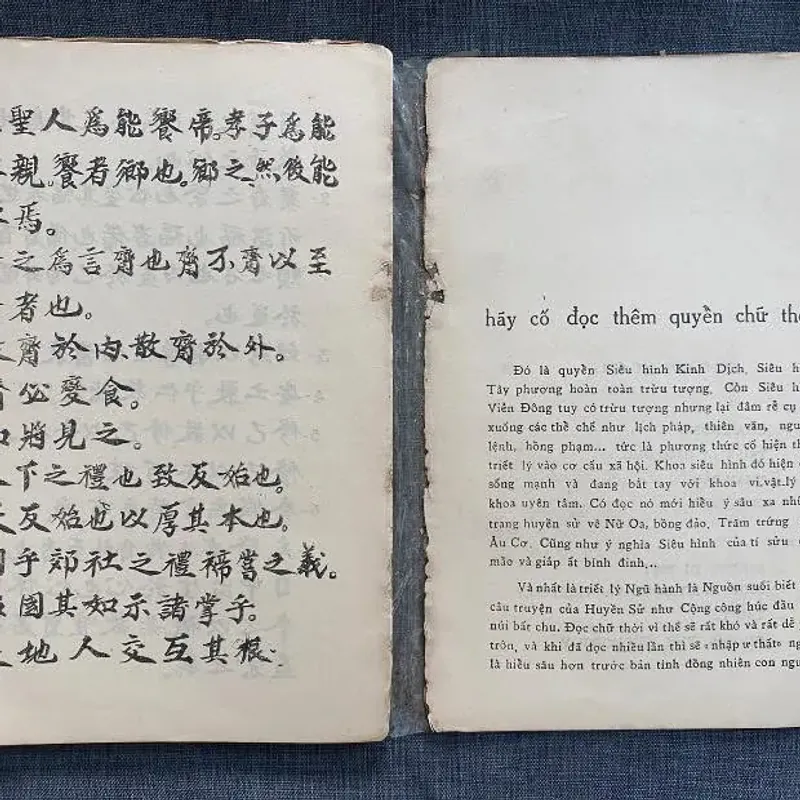 聖人爲能饗帝。孝子爲能
親。饗者鄉也。鄉之、然後能
焉。
之爲言齊也齊不齊以至
者也。
齊於內、散齊於外。
必變食。
將見之。
下之禮也致反始也。
反始也以厚其本也。
乎郊社之禮禘嘗之義。
國其如示諸掌乎。
地人交互其根.
hãy cố đọc thêm quyển chữ
Đó là quyển Siêu hình Kinh Dịch. Siêu
Tây phương hoàn toàn trừu tượng. Còn Siêu
Viễn Đông tuy có trừu tượng nhưng lại đâm rễ cụ
xuống các thể chế như lịch pháp, thiên văn,
lệnh, hồng phạm... tức là phương thức cố hiện
triết lý vào cơ cấu xã hội. Khoa siêu hình đó hiện
sống mạnh và đang bắt tay với khoa vi.vật.lý
khoa uyên tâm. Có đọc nó mới hiểu ý sâu xa
trang huyền sử về Nữ Oa, bồng đảo, Trăm trứng
Âu Cơ. Cũng như ý nghĩa Siêu hình của tí sửu
mão và giáp ất bính đinh...
Và nhất là triết lý Ngũ hành là Nguồn suối biết
câu truyện của Huyền Sử như Cộng công húc đầu
núi bất chu. Đọc chữ thời vì thế sẽ rất khó và rất dễ
trôn, và khi đã đọc nhiều lần thì sẽ «nhập ư thất»
là hiểu sâu hơn trước bản tính đồng nhiên con